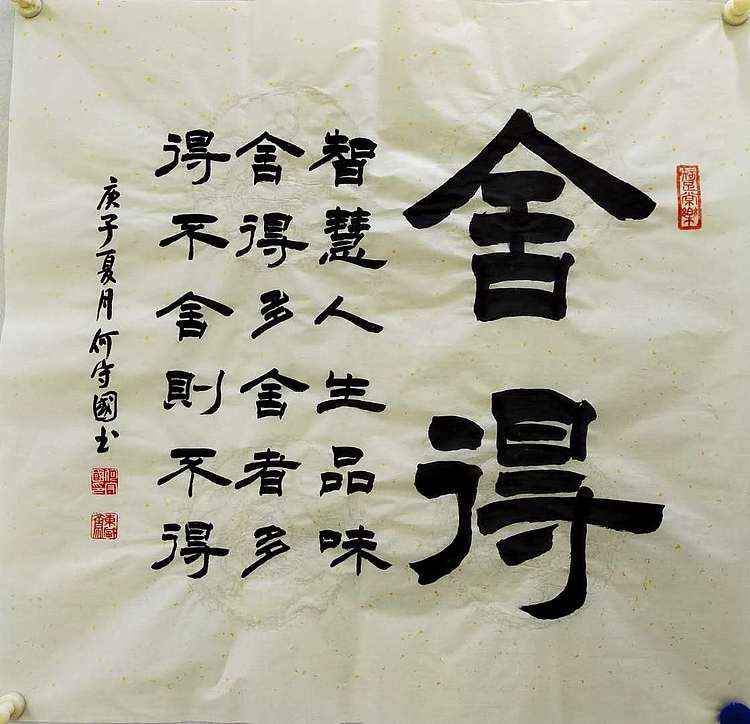 舍得
智慧人生品味
舍得多舍者多
得不舍則不得
庚子夏月何守國书
知足常樂